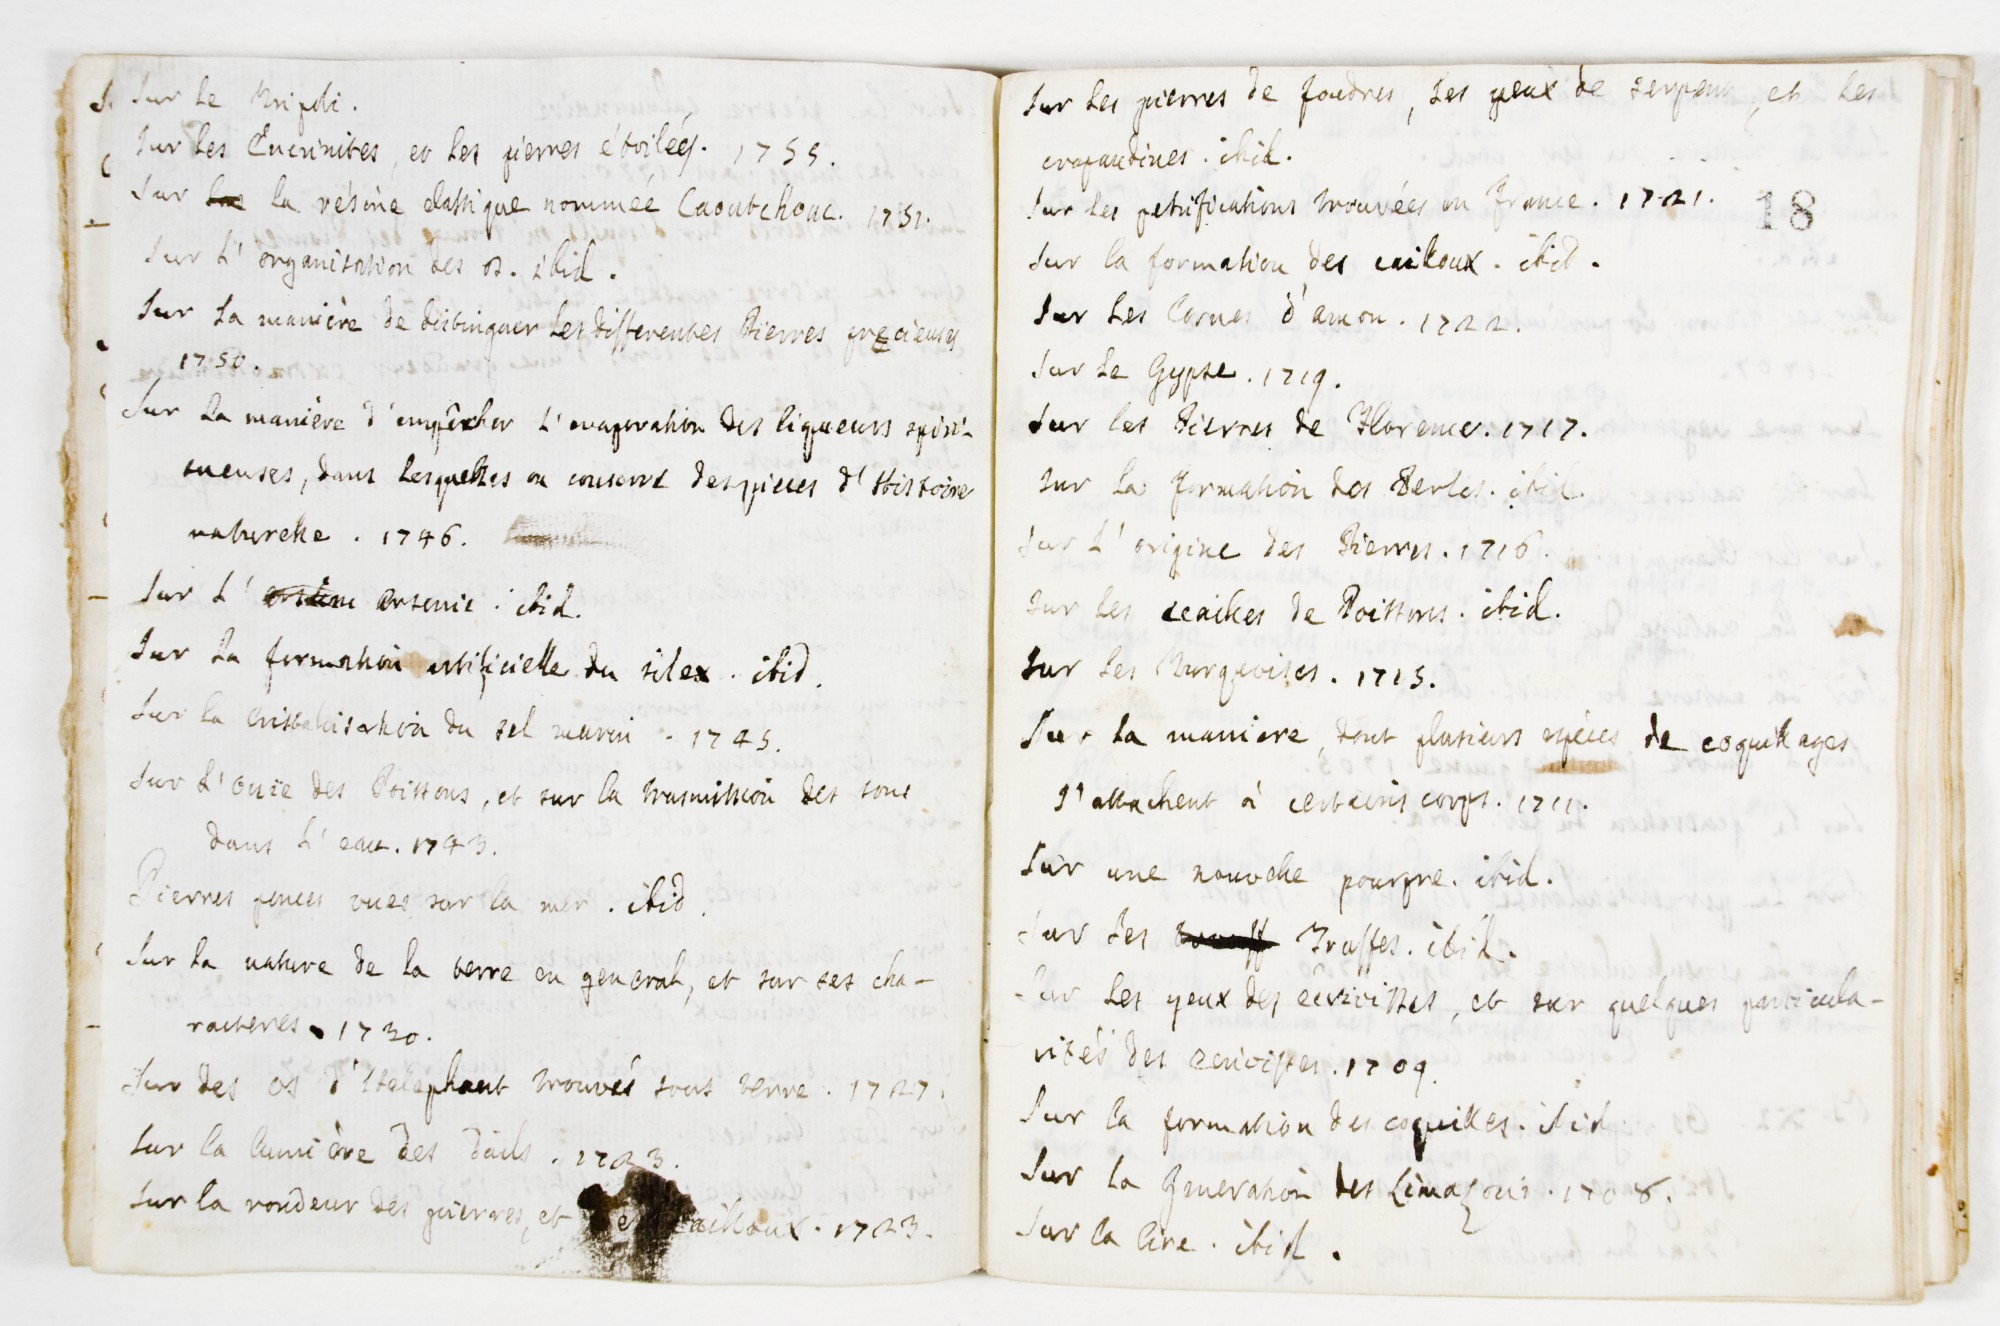 Sur le Tripoli.
Sur les Encrinites, et les pierres étoileés. 1755.
Sur la résine elastique nommeé Caoutchouc. 1751.
Sur l'organisation des os. ibid.
Sur la maniere de distinguer les differentes Pierres precieuses
1750.
Sur la maniere d'empêcher l'evaporation des liqueurs spiri-
tueuses, dans lesquelles on conserve des pieces d'Histoire
naturelle. 1746.
Sur l' arsenic. ibid.
Sur la formation artificielle du silex. ibid.
Sur la cristallisation du sel marin. 1745.
Sur l'ouïe des Poissons, et sur la trasmission des sons
dans l'eau. 1743.
Pierres ponces vues sur la mer. ibid.
Sur la nature de la terre en general, et sur ses cha-
racteres. 1730.
Sur des os d' trouvés sous terre. 1727.
Sur la lumière des Dails. 1723.
Sur la rondeur des pierres, et des cailloux. 1723.
Sur les pierres de foudres, les yeux de serpent, et les
crapaudines. ibid.
Sur les petrifications trouvées en France. 1721.
18
Sur la formation des cailloux. ibid.
Sur les Cornes d'amon. 1722.
Sur le Gypse. 1719.
Sur les Pierres de Florence. 1717.
Sur la formation des Perles. ibid.
Sur l'origine des Pierres. 1716.
Sur les ecailles de Poissons. ibid.
Sur les Turquoises. 1715.
Sur la maniere, dont plusieurs espéces de coquillages
s'attachent à certains corps. 1711.
Sur une nouvelle pourpre. ibid.
Sur les Truffes. ibid.
Sur les yeux des ecrivisses, et sur quelques particula-
rités des ecrivisses. 1709.
Sur la formation des coquilles. ibid.
Sur la generation des Limaçons. 1708.
Sur la Cire. ibid.